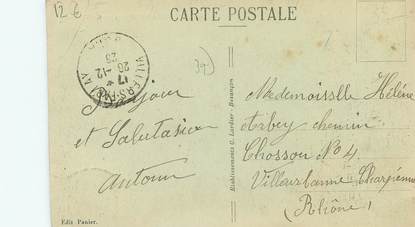 12 €
CARTE POSTALE
(39)
17 *
26 -12
25
Bonjour
et Salutasion
antoine
Etablissements C. Lardier - Besançon
Mademoisslle Hélène
Arbey chemin
Chosson No 4
Villeurbanne Charpenne
(Rhône)
Edit Panier.